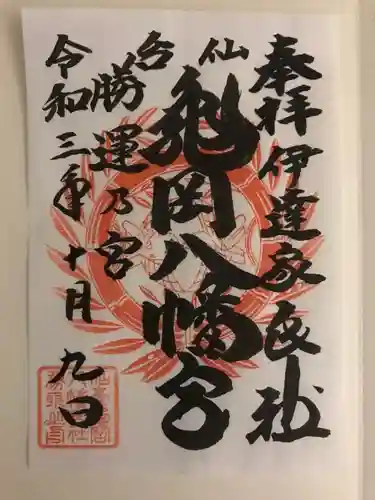 奉拝 伊達家氏社
仙台
亀岡八幡宮
勝運乃宮
令和三年十月九日